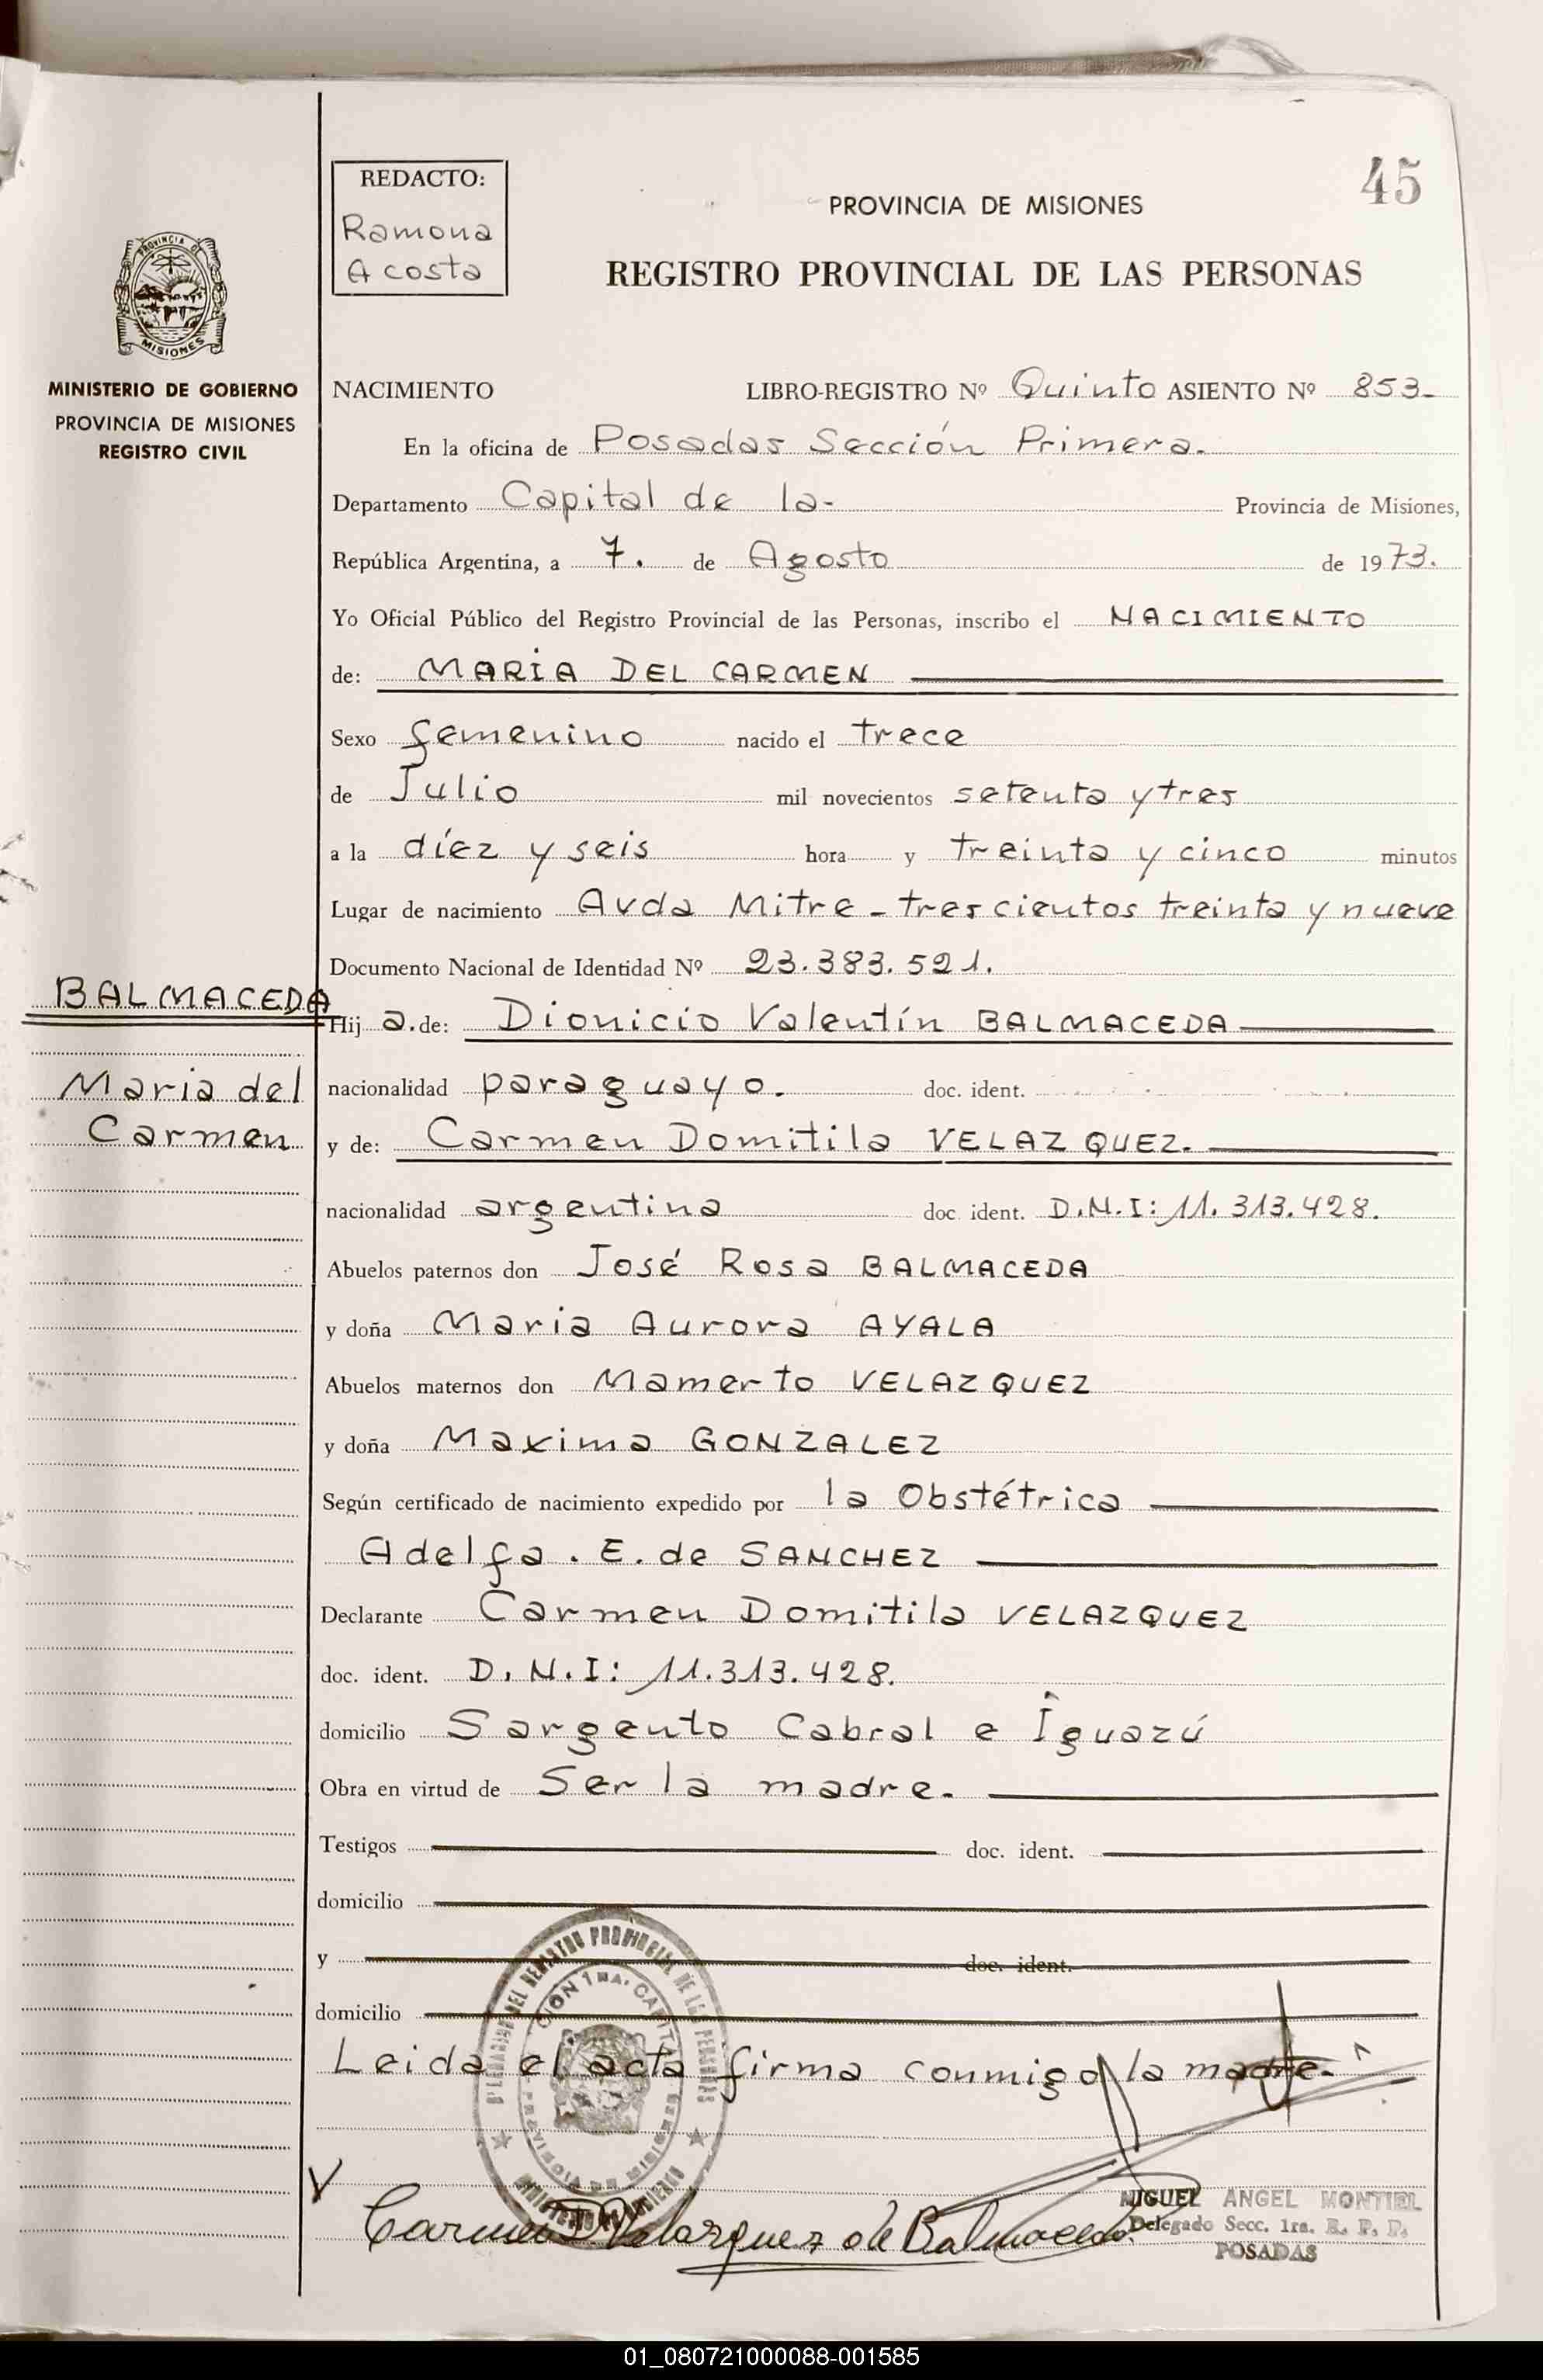 45
REDACTO:
Ramona
Acosta
PROVINCIA DE MISIONES
REGISTRO PROVINCIAL DE LAS PERSONAS
PROVINCIA DE
MISIONES
MINISTERIO DE GOBIERNO
PROVINCIA DE MISIONES
REGISTRO CIVIL
NACIMIENTO LIBRO-REGISTRO Nº Quinto ASIENTO Nº 853-
En la oficina de Posadas Sección Primera.
Departamento Capital de la- Provincia de Misiones,
República Argentina, a 7. de Agosto de 1973.
Yo Oficial Público del Registro Provincial de las Personas, inscribo el NACIMIENTO
de: MARIA DEL CARMEN
Sexo femenino nacido el trece
de Julio mil novecientos setenta y tres
a la díez y seis hora y treinta y cinco minutos
Lugar de nacimiento Avda Mitre - trescientos treinta y nueve
Documento Nacional de Identidad Nº 23.383.521.
BALMACEDA
Maria del
Carmen
Hij a. de: Dionicio Valentín BALMACEDA
nacionalidad paraguayo. doc. ident.
y de: Carmen Domitila VELAZQUEZ.
nacionalidad argentina doc. ident. D.N.I: 11.313.428.
Abuelos paternos don José Rosa BALMACEDA
y doña Maria Aurora AYALA
Abuelos maternos don Mamerto VELAZQUEZ
y doña Maxima GONZALEZ
Según certificado de nacimiento expedido por la Obstétrica
Adelfa. E. de SANCHEZ
Declarante Carmen Domitila VELAZQUEZ
doc. ident. D.N.I: 11.313.428.
domicilio Sargento Cabral e Iguazú
Obra en virtud de Ser la madre.
Testigos doc. ident.
domicilio
y doc. ident.
domicilio
Leida el acta firma conmigo la madre.
Carmen D Velazquez de Balmaceda
MIGUEL ANGEL MONTIEL
Delegado Secc. 1ra. R. P. P.
POSADAS
01_080721000088-001585